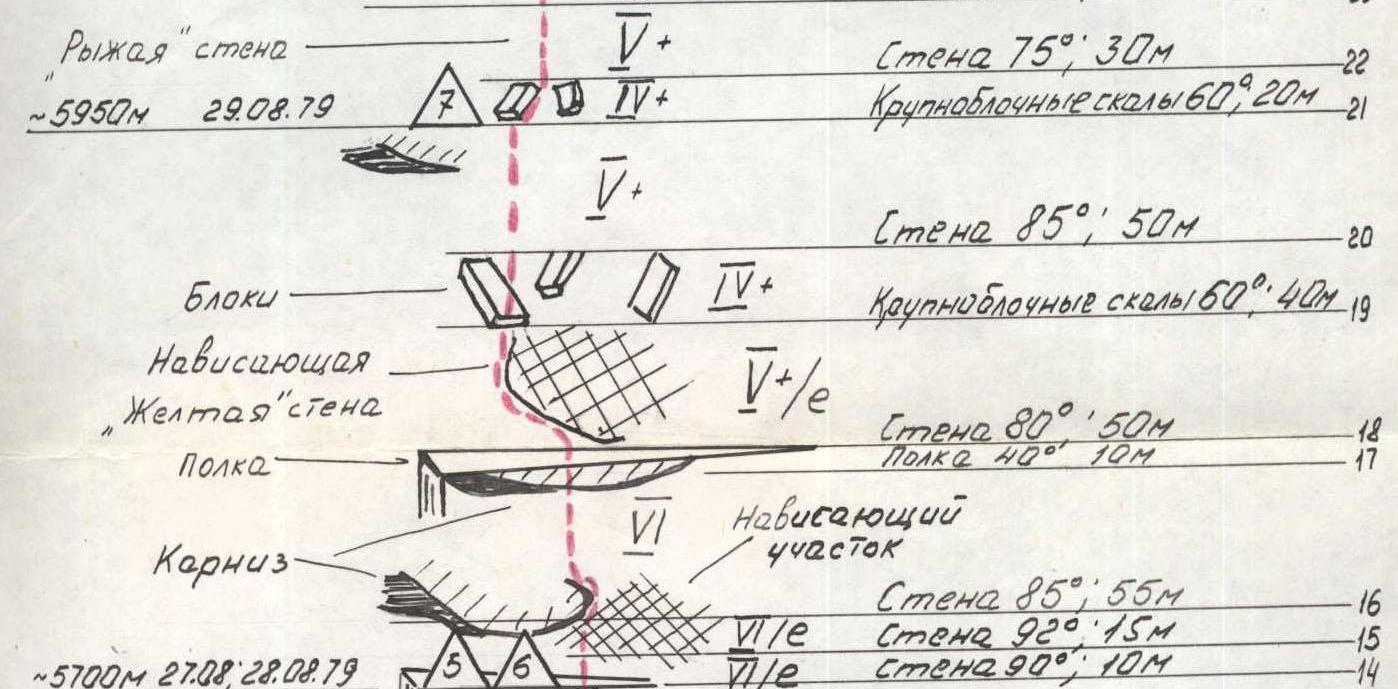 „Рыжая" стена V+ Стена 75°; 30м 22
~5950м 29.08.79 7 IV+ Крупноблочные скалы 60°; 20м 21
V+
Стена 85°; 50м 20
Блоки IV+ Крупноблочные скалы 60°; 40м 19
Нависающая V+/e
„Желтая" стена
Стена 80°; 50м 18
Полка Полка 40° 10м 17
VI Нависающий
участок
Карниз
Стена 85°; 55м 16
VI/e Стена 92°; 15м 15
~5700м 27.08; 28.08.79 5 6 VI/e Стена 90°; 10м 14